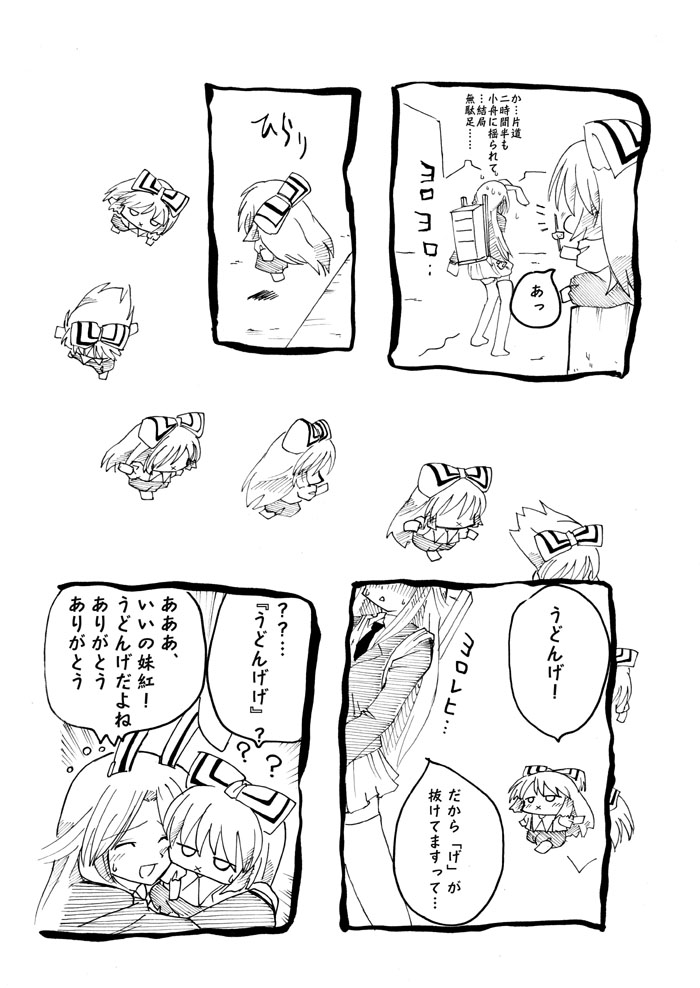 か…片道
二時間半も
小舟に揺られて、
…結局
無駄足……
ヨロ
ヨロ…
あっ
ひらり
うどんげ！
ヨロレヒ…
だから「げ」が
抜けてますって…
？？…
『うどんげげ』？
？
？
？
あああ、
いいの妹紅！
うどんげだよね
ありがとう
ありがとう